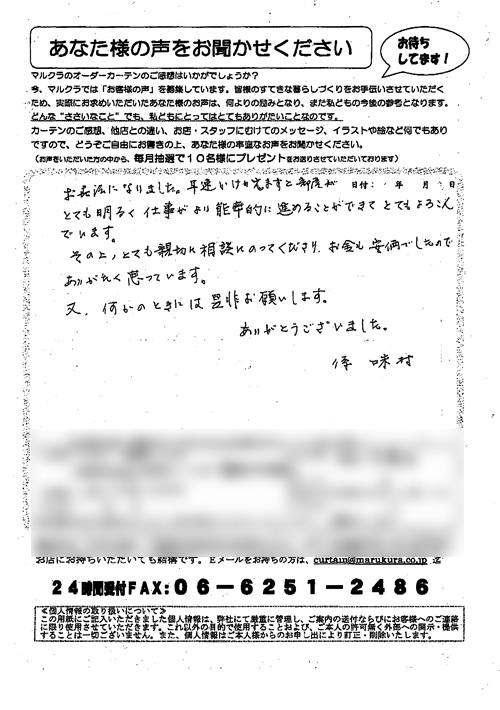 あなた様の声をお聞かせください
お待ち
してます!
マルクラのオーダーカーテンのご感想はいかがでしょうか?
今、マルクラでは「お客様の声」を募集しています。皆様のすてきな暮らしづくりをお手伝いさせていただく
ため、実際にお求めいただいたあなた様のお声は、何よりの励みとなり、また私どもの今後の参考となります。
どんな“ささいなこと”でも、私どもにとってはとてもありがたいことなのです。
カーテンのご感想、他店との違い、お店・スタッフにむけてのメッセージ、イラストや絵など何でもあり
ですので、どうぞご自由にお書きの上、あなた様の率直なお声をお聞かせください。
(お声をいただいた方の中から、毎月抽選で10名様にプレゼントをお送りさせていただいております)
お世話になりました。早速いけかえますと部屋が 日付: 年 月 日
とても明るく仕事がより能率的に進めることができてとてもよろこん
でいます。
その上、とても親切に相談にのってくださり、お金も安価でしたので
ありがたく思っています。
又、何かのときには是非お願いします。
ありがとうございました。
お店にお持ちいただいても結構です。Eメールをお持ちの方は、curtain@marukura.co.jp 迄
24時間受付FAX:06-6251-2486
≪個人情報の取り扱いについて≫
この用紙にご記入いただきました個人情報は、弊社にて厳重に管理し、ご案内の送付ならびにお客様へのご連絡
に限り使用させていただきます。これ以外の目的で使用することおよび、ご本人の許可無く外部への開示・提供
することは一切ございません。また、個人情報はご本人様からのお申し出により訂正・削除いたします。